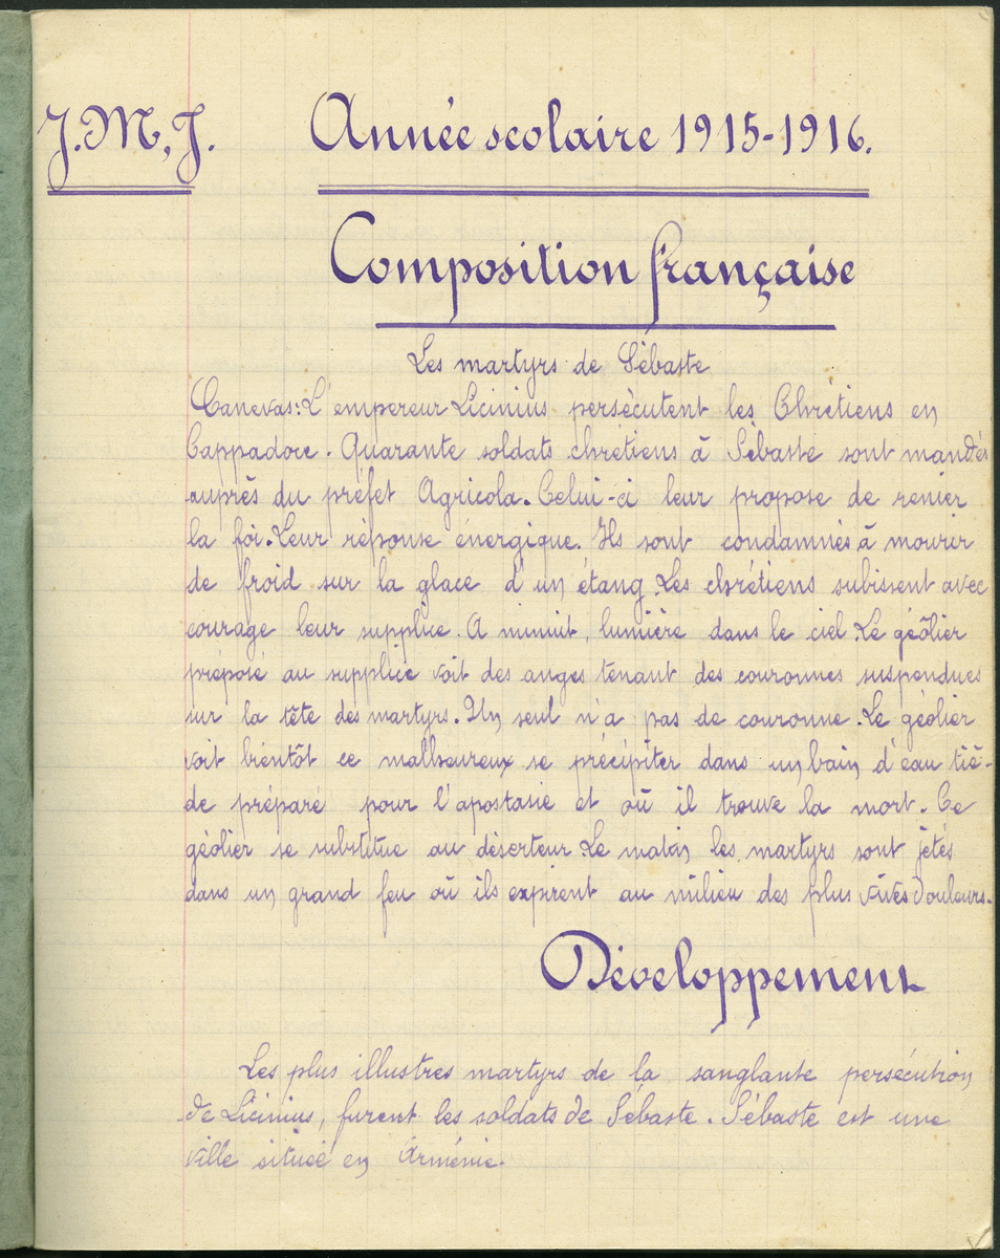 J.M.J. Année scolaire 1915-1916.
Composition française
Les martyrs de Sébaste
Canevas: L'empereur Licinius persécutent les Chrétiens en
Cappadoce. Quarante soldats chrétiens à Sébaste sont mandés
auprès du préfet Agricola. Celui-ci leur propose de renier
la foi. Leur réponse énergique. Ils sont condamnés à mourir
de froid sur la glace d'un étang. Les chrétiens subissent avec
courage leur supplice. A minuit, lumière dans le ciel. Le geôlier
préposé au supplice voit des anges tenant des couronnes suspendues
sur la tête des martyrs. Un seul n'a pas de couronne. Le geôlier
voit bientôt ce malheureux se précipiter dans un bain d'eau tiè-
de préparé pour l'apostasie et où il trouve la mort. Ce
geôlier se substitue au déserteur. Le matin les martyrs sont jetés
dans un grand feu où ils expirent au milieu des plus vives douleurs.
Développement
Les plus illustres martyrs de la sanglante persécution
de Licinius, furent les soldats de Sébaste. Sébaste est une
ville située en Arménie.